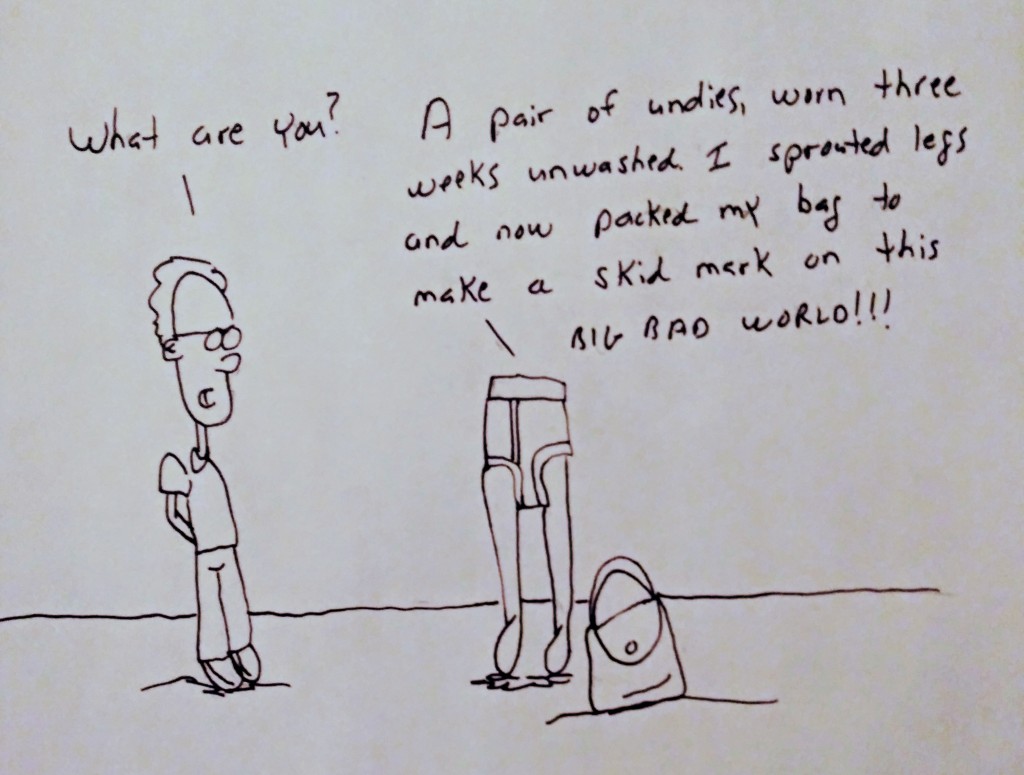 What are you?
A pair of undies, worn three
weeks unwashed. I sprouted legs
and now packed my bag to
make a skid mark on this
BIG BAD WORLD!!!